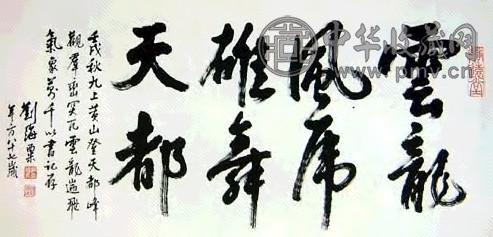 雲龍
風虎
雄舞
天都
壬戌秋九上黄山登天都峰
觀群巒突兀雲龍遊飛
氣象萬千以書記存
劉海粟
年方八十七歲
中华收藏网
www.pmv.cn